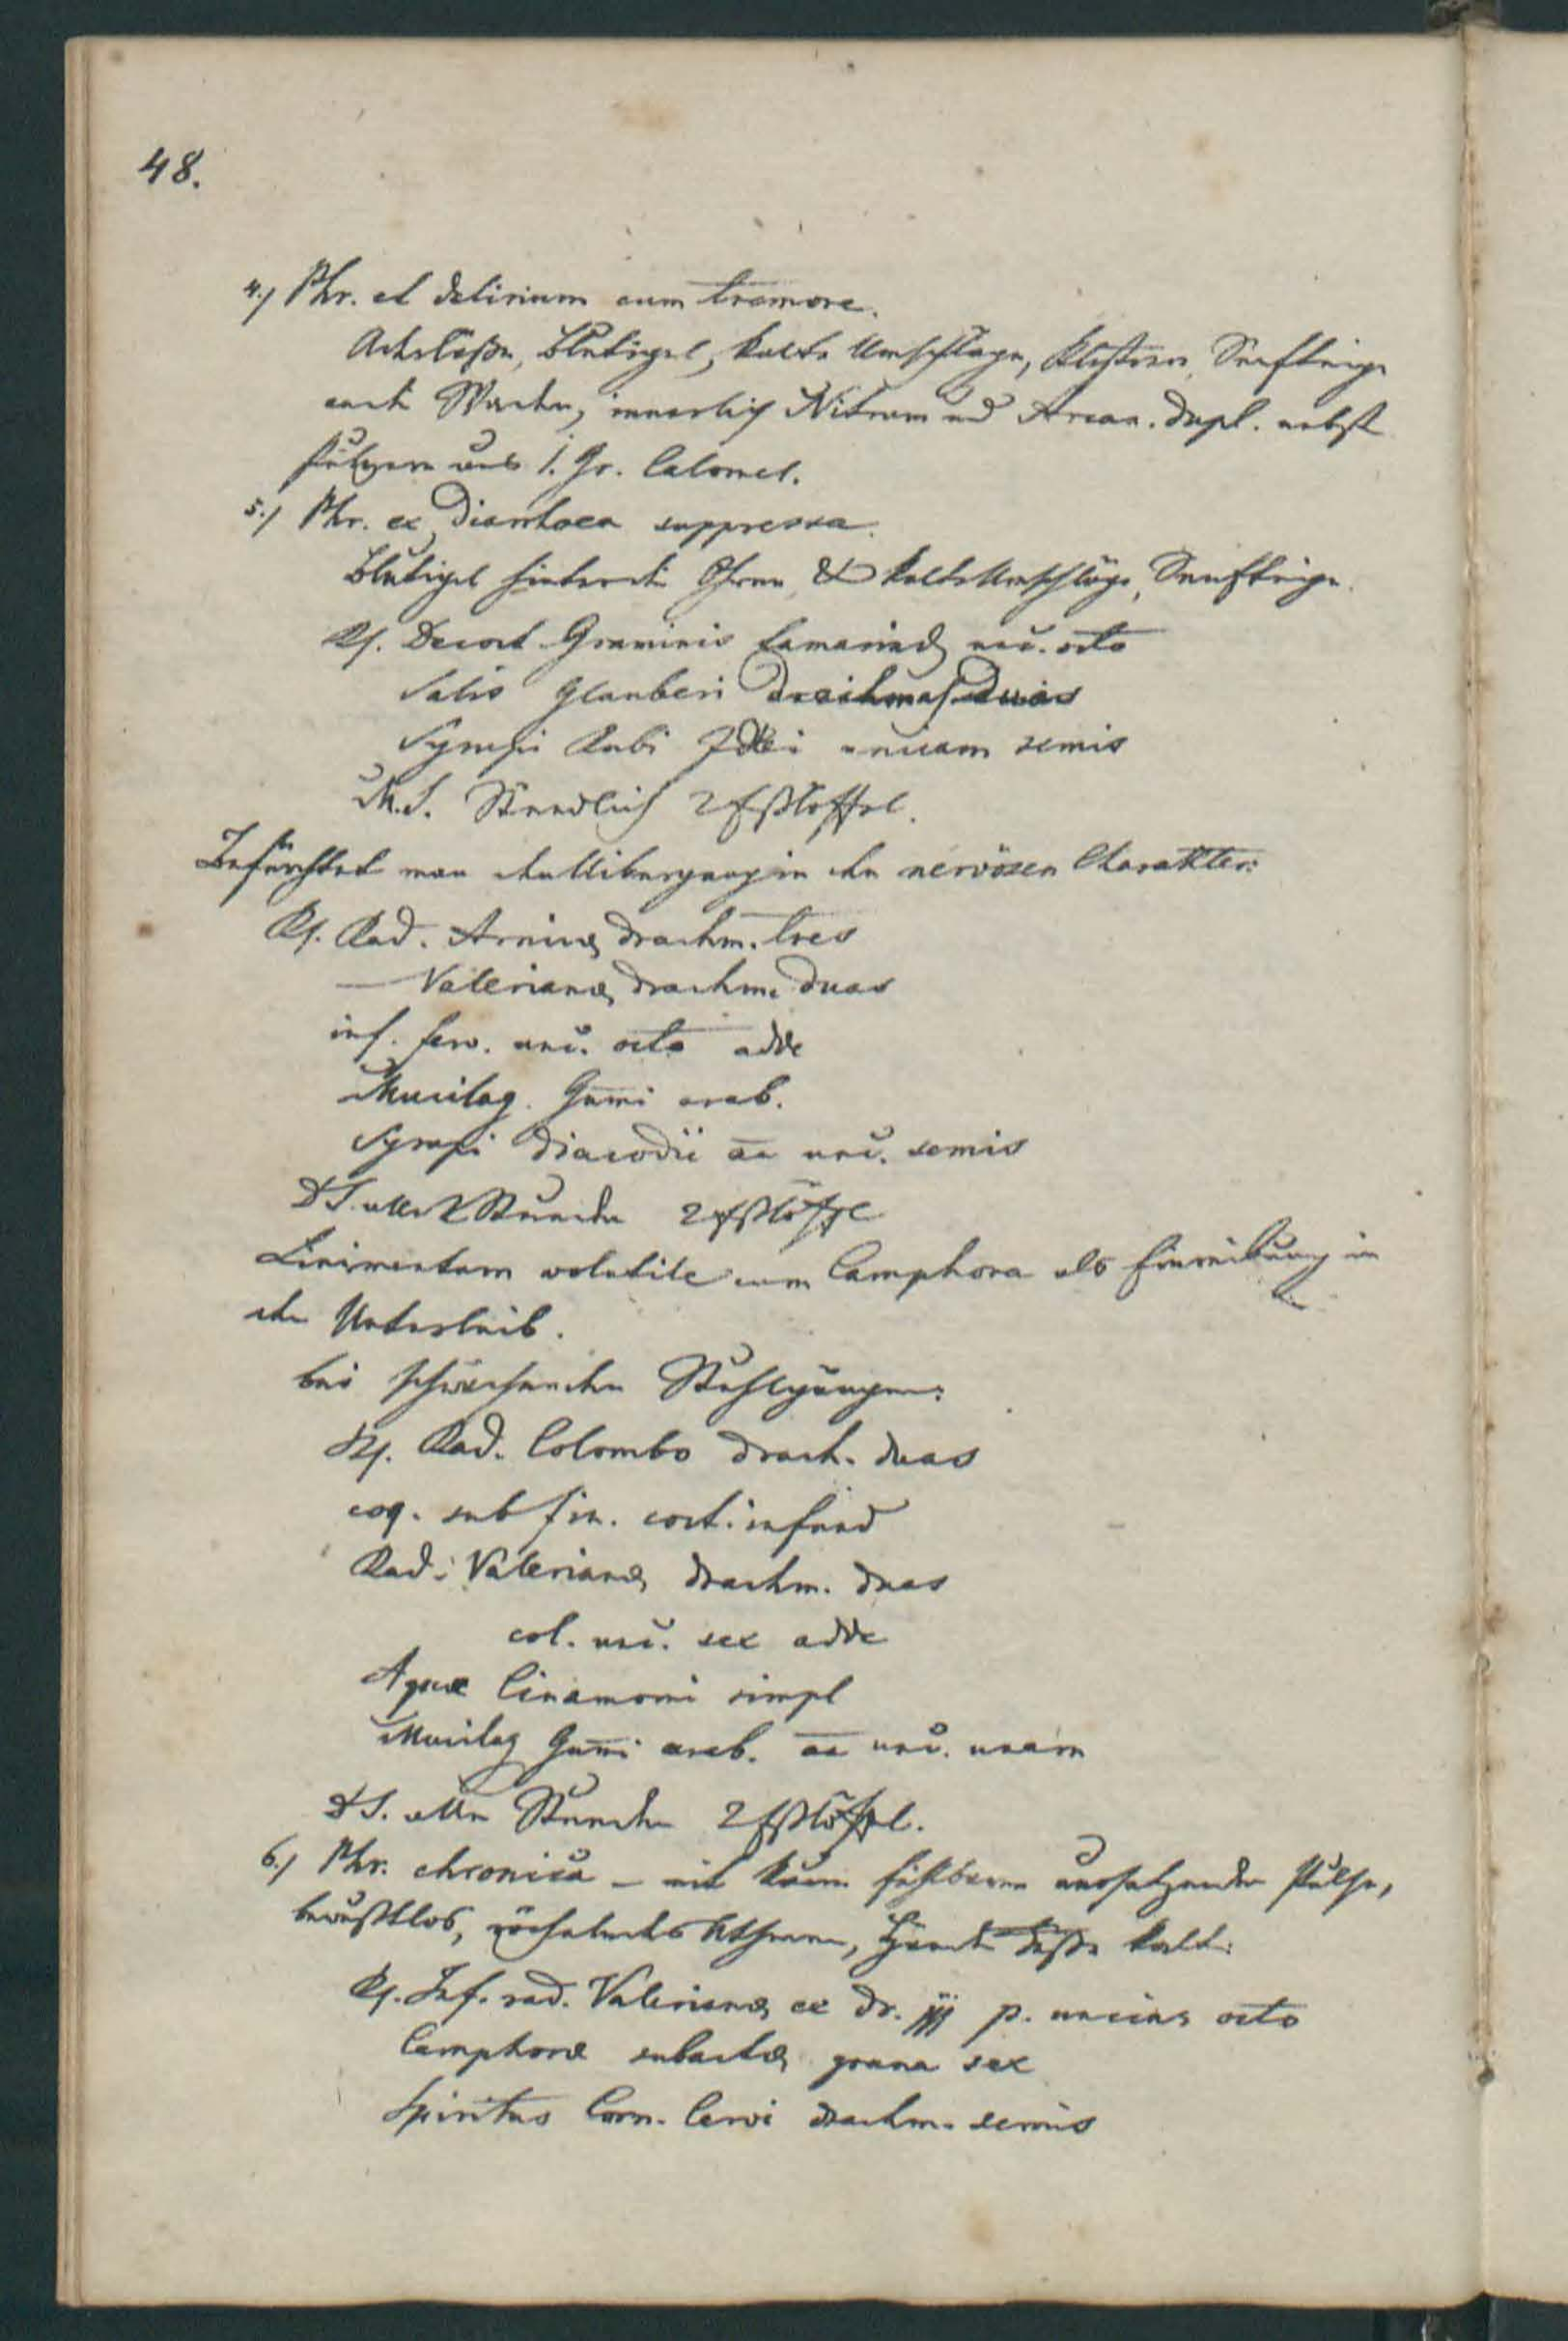 48.
4./ Phr. et delirium cum tremore.
Aderlaße, Blutigel, kalte Umschläge, Klystire, Senfteige
an die Waden, innerlich Nitrum und Arcan. dupl. nebst
Pulvern aus 1. Gr. Calomel.
5./ Phr. ex Diarrhoea suppressa.
Blutigel hinter die Ohren, & kalte Umschläge, Senfteige.
Rp. Decoct Graminis tamarind unc. octo
Salis Glauberi drachmas duas
Syrupi Rubi Idei unciam semis
M.S. Stündlich 2 Eßlöffel.
Befürchtet man den Uibergang in den nervösen Charakter:
Rp. Rad. Arnicæ drachm. tres
— Valerianæ drachm. duas
inf. ferv. unc. octo adde
Mucilag. Gumi arab.
Syrupi Diacodii aa unc. semis
DS. alle 2 Stunden 2 Eßlöffel
Linimentum volatile cum Camphora als Einreibung in
den Unterleib.
bei schwächenden Stuhlgängen:
Rp. Rad. Colombo drach. duas
coq. sub fin. coct. infund
Rad. Valerianæ drachm. duas
col. unc. sex adde
Aquæ Cinamomi simpl
Mucilag Gumi arab. aa unc. unam
DS. alle Stunden 2 Eßlöffel.
6./ Phr. chronica – mit kaum fühlbaren aussetzenden Pulse,
bewußtlos, röchelndes Athmen, Hände Füße kalt:
Rp. Inf. rad. Valerianæ ex dr. jjj p. uncias octo
Camphoræ subactæ grana sex
Spiritus Corn. Cervi drachm. semis